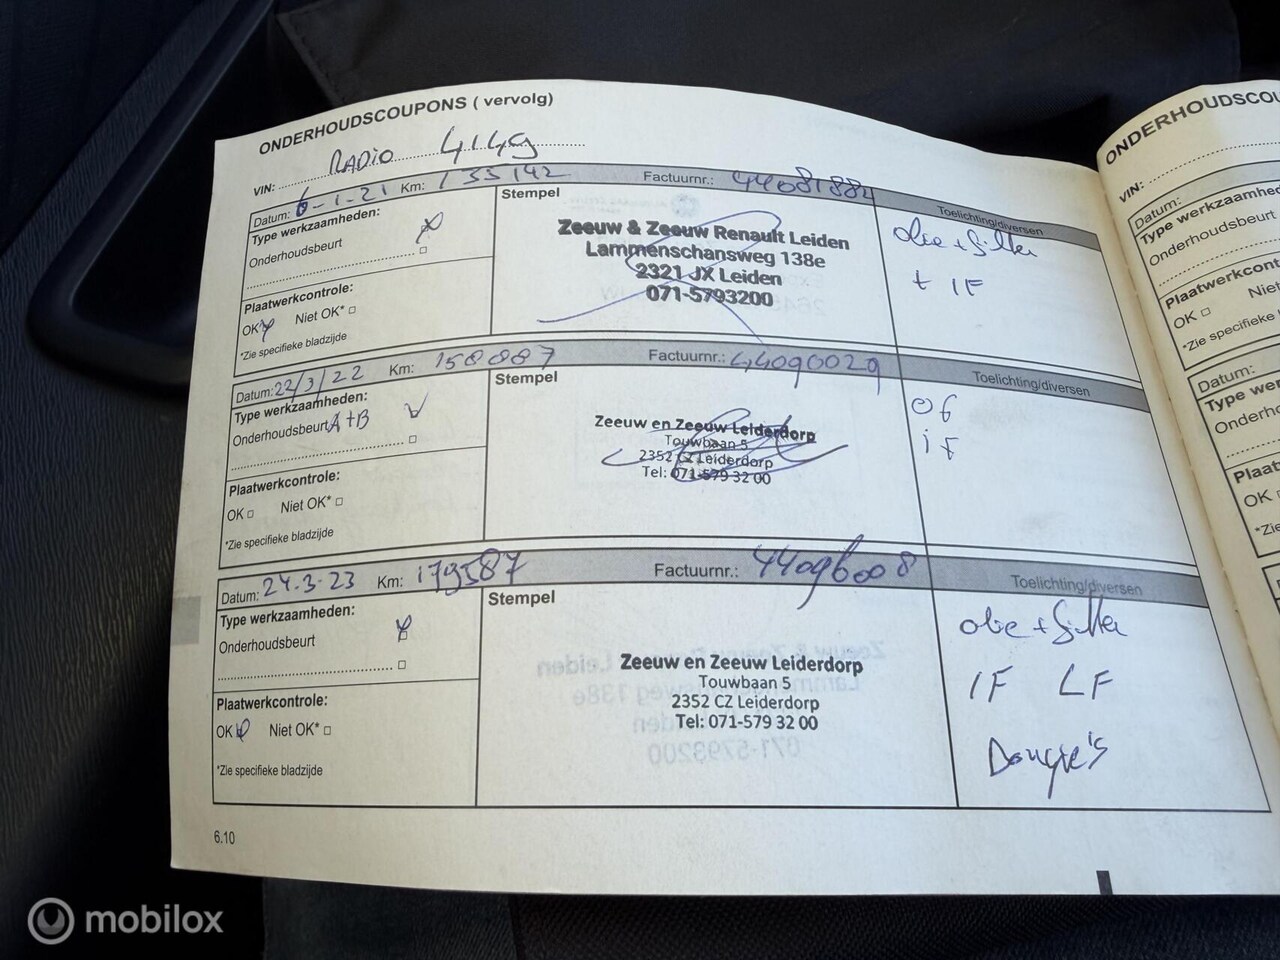 ONDERHOUDSCOUPONS ( vervolg)
VIN: RADIO 4149
Datum: 6-1-21 Km: 135142 Factuurnr.: 44081882
Type werkzaamheden:
Onderhoudsbeurt
Plaatwerkcontrole:
OK Niet OK*
*Zie specifieke bladzijde
Stempel
Zeeuw & Zeeuw Renault Leiden
Lammenschansweg 138e
2321 JX Leiden
071-5793200
Toelichting/diversen
olie + filter
+ IF
Datum: 22/3/22 Km: 158887 Factuurnr.: 44090029
Type werkzaamheden:
Onderhoudsbeurt A+B
Plaatwerkcontrole:
OK Niet OK*
*Zie specifieke bladzijde
Stempel
Zeeuw en Zeeuw Leiderdorp
Touwbaan 5
2352 CZ Leiderdorp
Tel: 071-579 32 00
Toelichting/diversen
OF
iF
Datum: 24-3-23 Km: 179587 Factuurnr.: 44096008
Type werkzaamheden:
Onderhoudsbeurt
Plaatwerkcontrole:
OK Niet OK*
*Zie specifieke bladzijde
Stempel
Zeeuw en Zeeuw Leiderdorp
Touwbaan 5
2352 CZ Leiderdorp
Tel: 071-579 32 00
Toelichting/diversen
olie + filter
IF LF
Bougie's
6.10
ONDERHOUDSCOU
VIN:
Datum:
Type werkzaam
Onderhoudsbeurt
Plaatwerkcont
OK Niet
*Zie specifieke
Datum:
Type wer
Onderho
Plaatw
OK
*Zie
mobilox